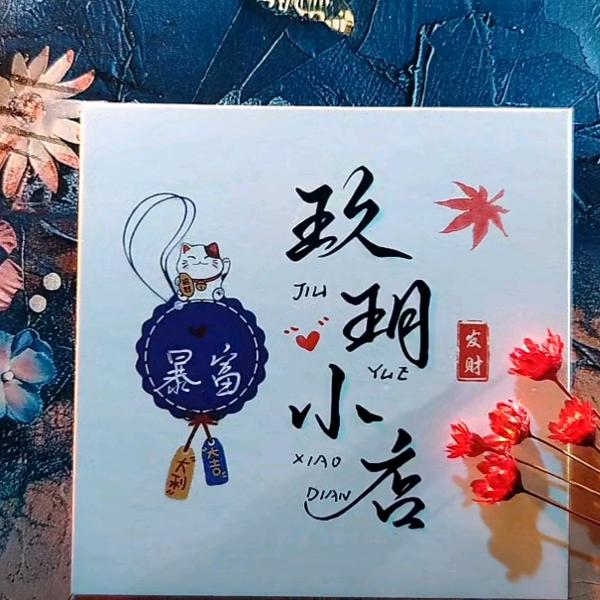 玖
JIU
玥
YUE
小
XIAO
店
DIAN
发财
暴富
大利
大吉